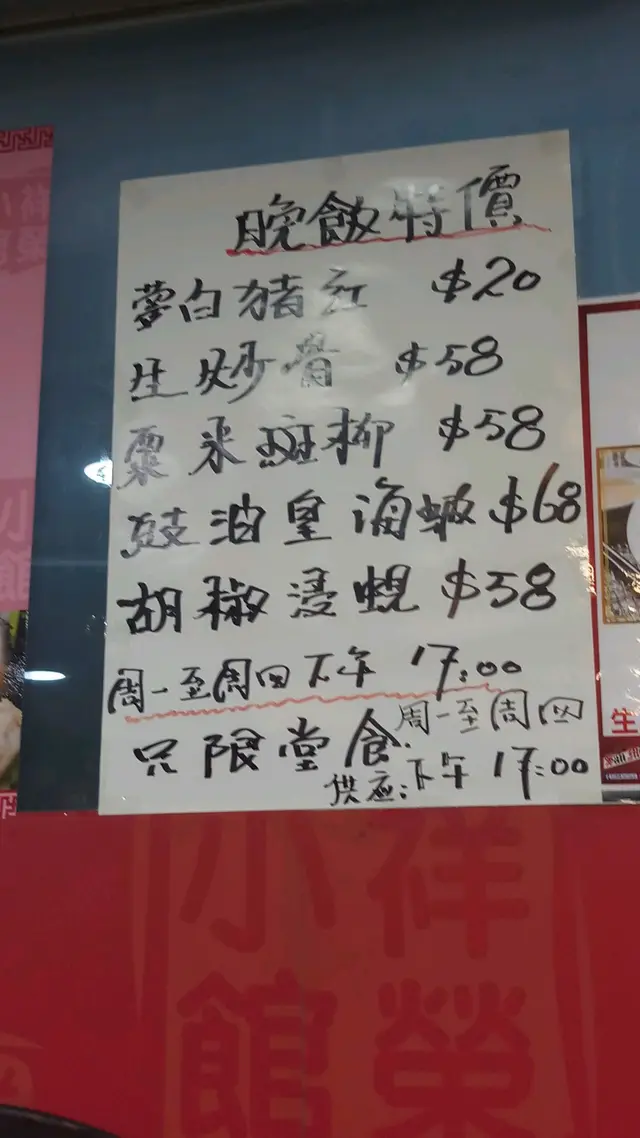 晚飯特價
蘿白猪紅 $20
生炒骨 $58
粟米斑柳 $58
鼓油皇海蝦 $68
胡椒浸蜆 $58
周一至周四下午 17:00
只限堂食.
周一至周四
供应:下午 17:00
生
小 祥
館 榮